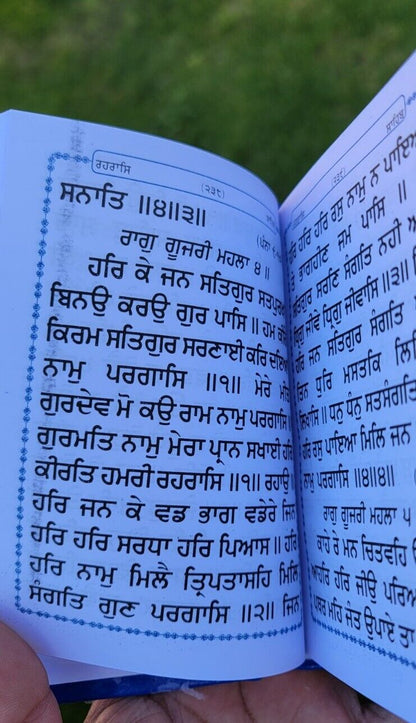 ਰਹਰਾਸਿ
(੨੩੮)
ਸਨਾਤਿ ॥੪॥੩॥
ਰਾਗੁ ਗੂਜਰੀ ਮਹਲਾ ੪ ॥
ਹਰਿ ਕੇ ਜਨ ਸਤਿਗੁਰ
ਬਿਨਉ ਕਰਉ ਗੁਰ ਪਾਸਿ ॥ ਹਮ
ਕਿਰਮ ਸਤਿਗੁਰ ਸਰਣਾਈ ਕਰਿ
ਨਾਮੁ ਪਰਗਾਸਿ ॥੧॥ ਮੇਰੇ
ਗੁਰਦੇਵ ਮੋ ਕਉ ਰਾਮ ਨਾਮੁ ਪਰਗਾਸਿ
ਗੁਰਮਤਿ ਨਾਮੁ ਮੇਰਾ ਪ੍ਰਾਨ ਸਖਾਈ ਹਰਿ
ਕੀਰਤਿ ਹਮਰੀ ਰਹਰਾਸਿ ॥੧॥ ਰਹਾਉ
ਹਰਿ ਜਨ ਕੇ ਵਡ ਭਾਗ ਵਡੇਰੇ ਜਿਨ
ਹਰਿ ਹਰਿ ਸਰਧਾ ਹਰਿ ਪਿਆਸ ॥ ਹਰਿ
ਹਰਿ ਨਾਮੁ ਮਿਲੈ ਤ੍ਰਿਪਤਾਸਹਿ ਮਿਲਿ
ਸੰਗਤਿ ਗੁਣ ਪਰਗਾਸਿ ॥੨॥ ਜਿਨ
(੨੩੯)
ਸਾਹਿਬ
ਹਰਿ ਹਰਿ ਹਰਿ ਰਸੁ ਨਾਮੁ ਨ ਪਾਇਆ
ਭਾਗਹੀਣ ਜਮ ਪਾਸਿ ॥
ਸਰਣਿ ਸੰਗਤਿ ਨਹੀ
ਜੀਵੇ ਧ੍ਰਿਗੁ ਜੀਵਾਸਿ ॥੩॥
ਹਰਿ ਜਨ ਸਤਿਗੁਰ ਸੰਗਤਿ
ਤਿਨ ਧੁਰਿ ਮਸਤਕਿ
॥ ਧਨੁ ਧੰਨੁ ਸਤਸੰਗਤਿ
ਹਰਿ ਰਸੁ ਪਾਇਆ ਮਿਲਿ ਜਨ
ਨਾਮੁ ਪਰਗਾਸਿ ॥੪॥੪॥
ਰਾਗੁ ਗੂਜਰੀ ਮਹਲਾ ੫
ਕਾਹੇ ਰੇ ਮਨ ਚਿਤਵਹਿ
ਆਹਰਿ ਹਰਿ ਜੀਉ ਪਰਿਆ
ਮਹਿ ਜੰਤ ਉਪਾਏ ਤਾ